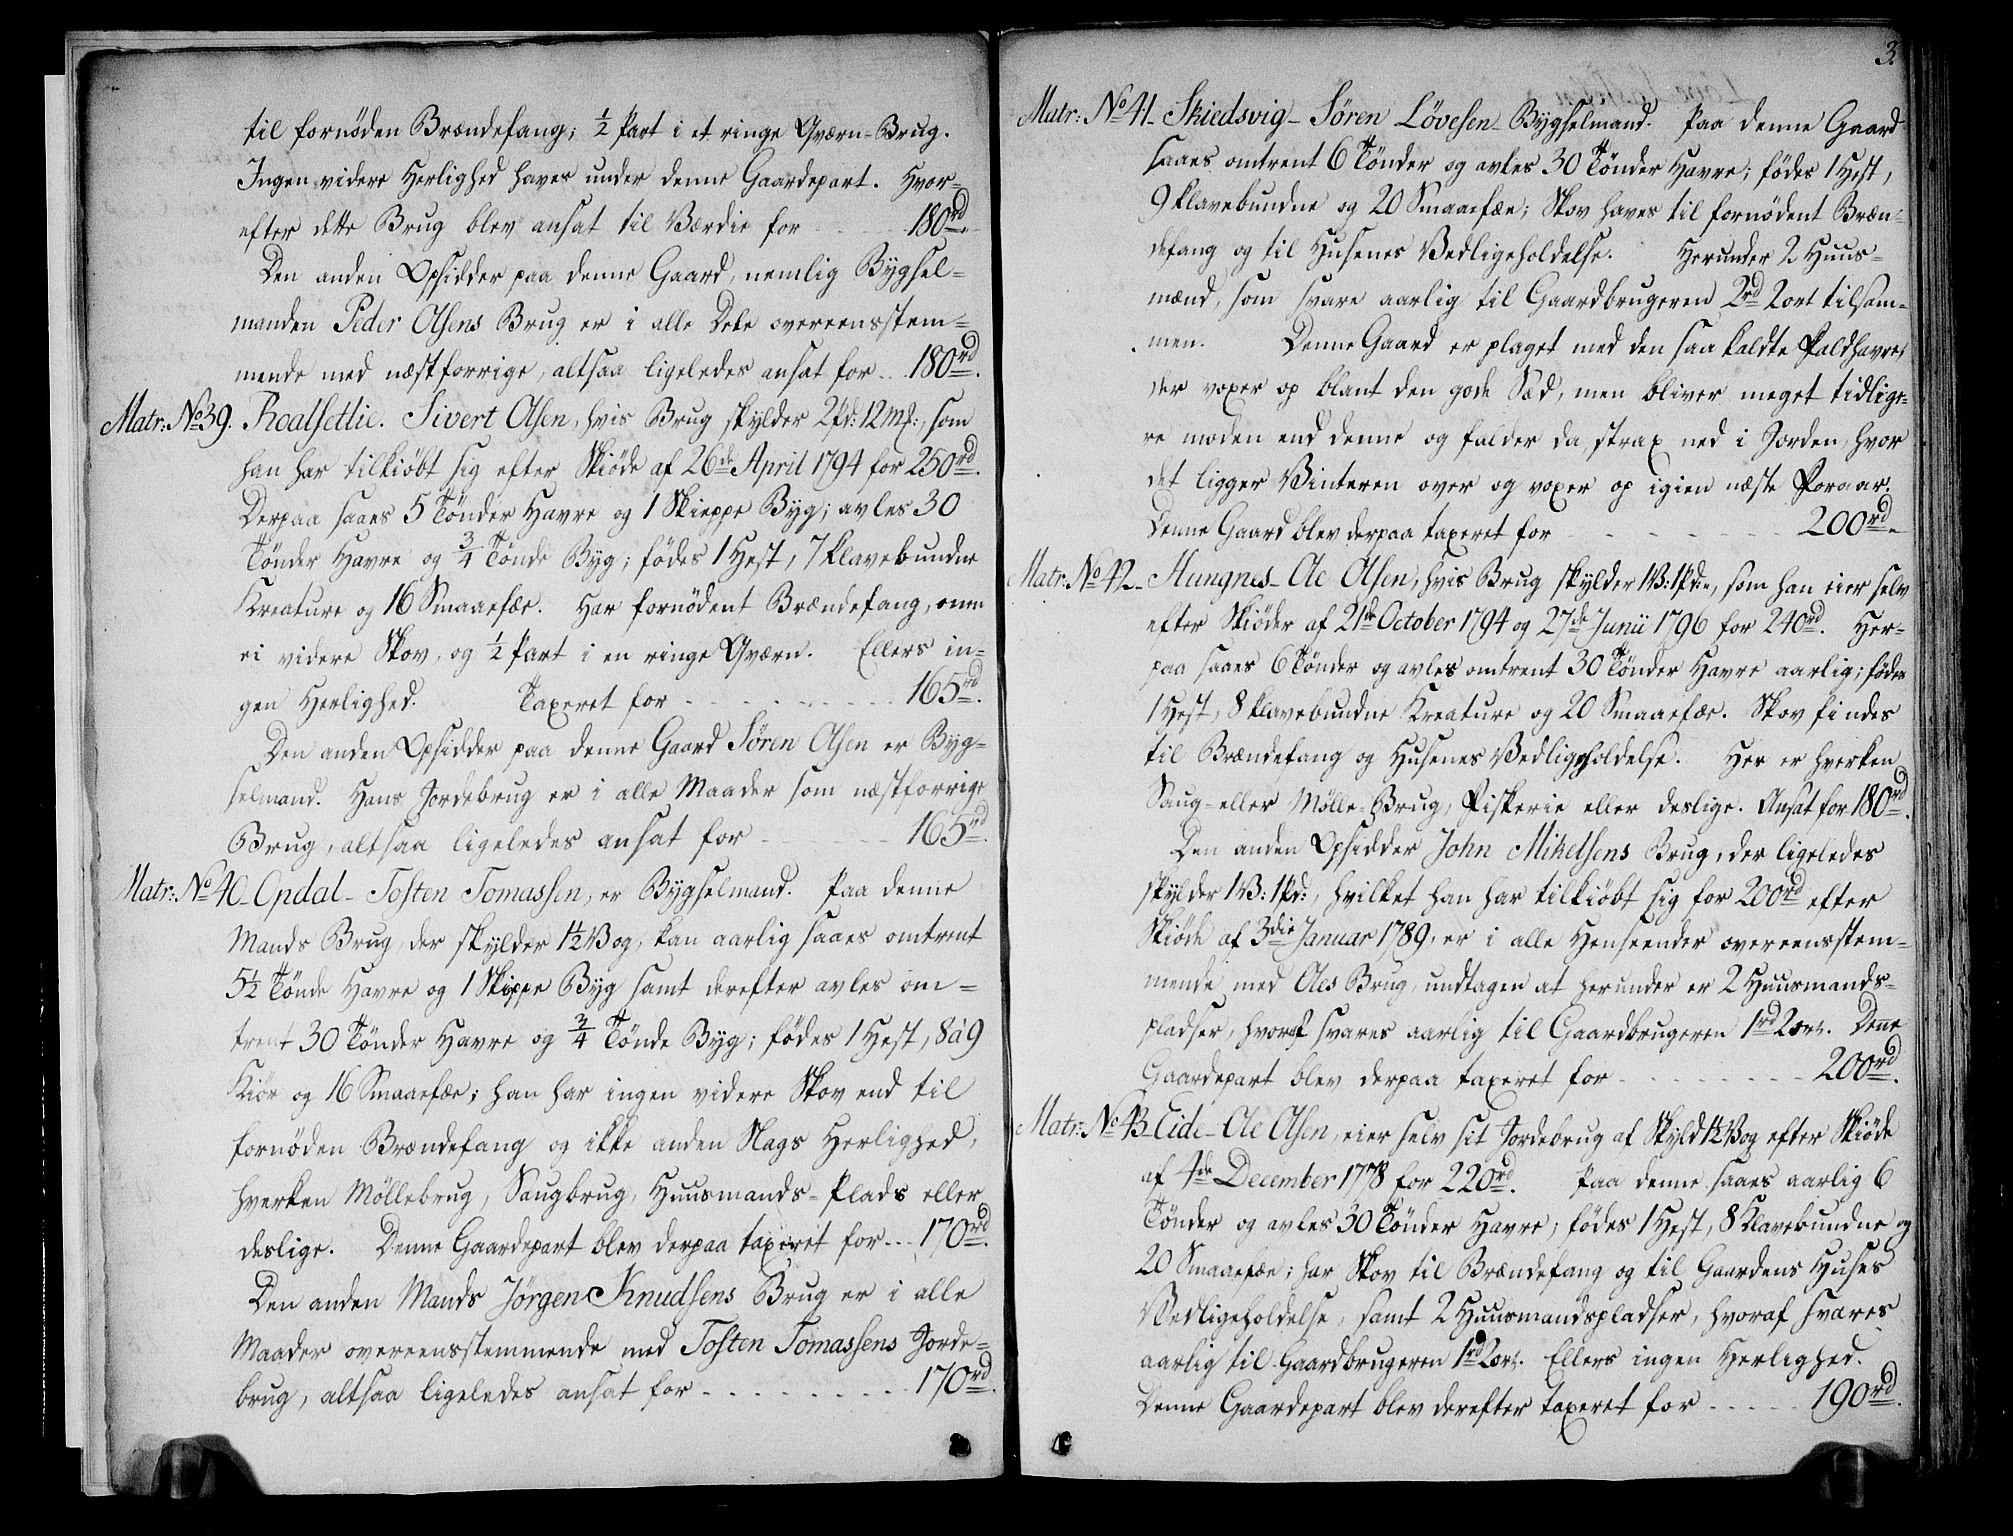 til fornøden Brændefang; ½ Part i et ringe Qværn-Brug.
Ingen videre Herlighed haves under denne Gaardepart. Hvor-
efter dette Brug blev ansat til Værdie for 180rd.
Den anden Opsidder paa denne Gaard, nemlig Bygsel-
manden Peder Olsens Brug er i alle Dele overeensstem-
mende med næstforrige, altsaa ligeledes ansat for 180rd.
Matr: No 39. Roalsetlie. Sivert Olsen, hvis Brug skylder 2pd: 12mk:, som
han har tilkiøbt sig efter Skiøde af 26de April 1794 for 250rd.
Derpaa saaes 5 Tønder Havre og 1 Skieppe Byg; avles 30
Tønder Havre og ¾ Tønde Byg; fødes 1 Hest, 7 klavebundne
Kreature og 16 Smaaefæe. Har fornødent Brændefang, men
ei videre Skov, og ½ Part i en ringe Qværn. Ellers in-
gen Herlighed. Taxeret for 165rd.
Den anden Opsidder paa denne Gaard Søren Olsen er Byg-
selmand. Hans Jordebrug er i alle Maader som næstforrige
Brug, altsaa ligeledes ansat for 165rd.
Matr: No 40 - Opdal - Tosten Tomassen, er Bygselmand. Paa denne
Mands Brug, der skylder 1½ Vog, kan aarlig saaes omtrent
5½ Tønde Havre og 1 Skippe Byg samt derefter avles om-
trent 30 Tønder Havre og ¾ Tønde Byg; fødes 1 Hest, 8 à 9
Kiør og 16 Smaaefæe; han har ingen videre Skov end til
fornøden Brændefang og ikke anden Slags Herlighed,
hverken Møllebrug, Saugbrug, Huusmands-Plads eller
deslige. Denne Gaardepart blev derpaa taxeret for 170rd.
Den anden Mands Jørgen Knudsens Brug er i alle
Maader overeensstemmende med Tosten Tomassens Jorde-
brug, altsaa ligeledes ansat for 170rd.
3.
Matr: No 41 - Skiedsvig - Søren Løvesen - Bygselmand. Paa denne Gaard
saaes omtrent 6 Tønder og avles 30 Tønder Havre; fødes 1 Hest,
9 klavebundne og 20 Smaaefæe; Skov haves til fornødent Bræn-
defang og til Husenes Vedligeholdelse. Herunder 2 Huus-
mænd, som svare aarlig til Gaardbrugeren 2rd 2ort tilsam-
men. Denne Gaard er plaget med den saa kaldte Faldhavre,
der voxer op blant den gode Sæd, men bliver meget tidlige-
re moden end denne og falder da strax ned i Jorden, hvor
det ligger Vinteren over og voxer op igien næste Foraar.
Denne Gaard blev derpaa taxeret for 200rd.
Matr: No 42 - Hungnes - Ole Olsen, hvis Brug skylder 1V: 1pd:, som han eier selv
efter Skiøder af 21de October 1794 og 27de Junii 1796 for 240rd. Her-
paa saaes 6 Tønder og avles omtrent 30 Tønder Havre aarlig; fødes
1 Hest, 8 klavebundne Kreature og 20 Smaaefæe. Skov findes
til Brændefang og Husenes Vedligeholdelse. Her er hverken
Saug- eller Mølle-Brug, Fiskerie eller deslige. Ansat for 180rd.
Den anden Opsidder John Mikelsens Brug, der ligeledes
skylder 1V: 1pd:, hvilket han har tilkiøbt sig for 200rd efter
Skiøde af 3die Januar 1789, er i alle Henseender overeensstem-
mende med Oles Brug, undtagen at herunder er 2 Huusmands-
pladser, hvoraf svares aarlig til Gaardbrugeren 1rd 2ort. Denne
Gaardepart blev derpaa taxeret for 200rd.
Matr: No 43 - Eide - Ole Olsen, eier selv sit Jordebrug af Skyld 1½ Vog efter Skiøde
af 4de December 1778 for 220rd. Paa denne saaes aarlig 6
Tønder og avles 30 Tønder Havre; fødes 1 Hest, 8 Klavebundne og
20 Smaaefæe; har Skov til Brændefang og til Gaardens Huses
Vedligeholdelse, samt 2 Huusmandspladser, hvoraf svares
aarlig til Gaardbrugeren 1rd 2ort. Ellers ingen Herlighed.
Denne Gaardepart blev derefter taxeret for 190rd.